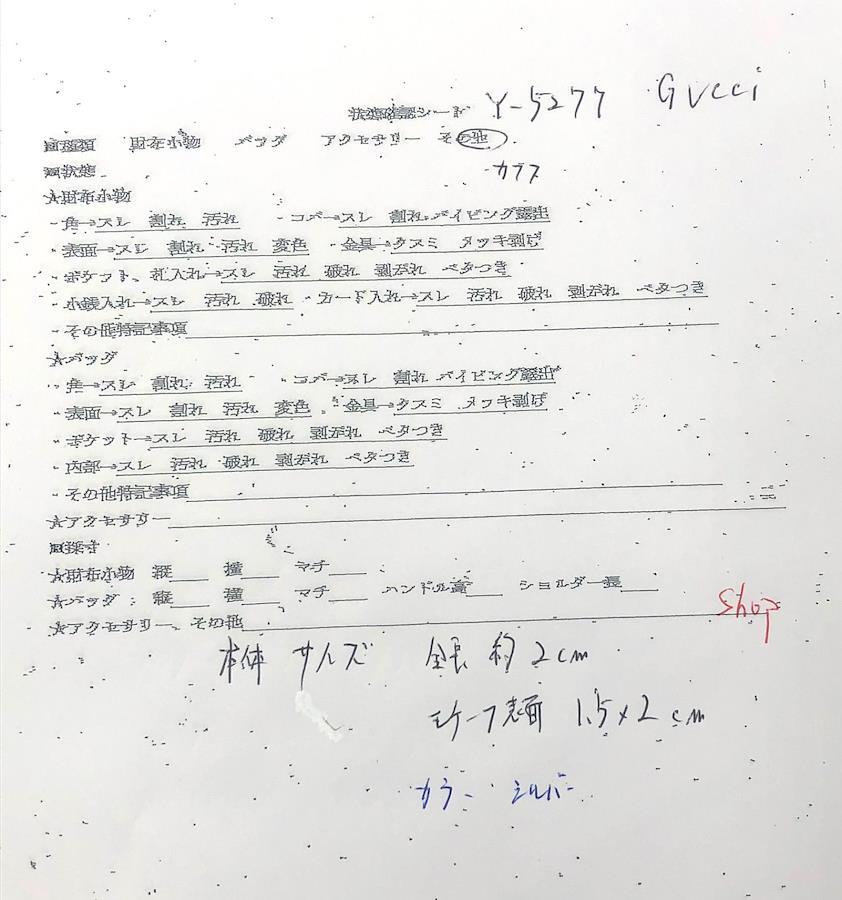 状態確認シート Y-5277 Gucci
■種類 財布小物 バッグ アクセサリー その他
■状態 カフス
★財布小物
・角→スレ 割れ 汚れ ・コバ→スレ 割れ パイピング露出
・表面→スレ 割れ 汚れ 変色 ・金具→クスミ メッキ剥げ
・ポケット、札入れ→スレ 汚れ 破れ 剥がれ ベタつき
・小銭入れ→スレ 汚れ 破れ ・カード入れ→スレ 汚れ 破れ 剥がれ ベタつき
・その他特記事項
★バッグ
・角→スレ 割れ 汚れ ・コバ→スレ 割れ パイピング露出
・表面→スレ 割れ 汚れ 変色 ・金具→クスミ メッキ剥げ
・ポケット→スレ 汚れ 破れ 剥がれ ベタつき
・内部→スレ 汚れ 破れ 剥がれ ベタつき
・その他特記事項
★アクセサリー
■採寸
★財布小物 縦 横 マチ
★バッグ:縦 横 マチ ハンドル高 ショルダー長
★アクセサリー、その他 shop
本体 サイズ 全長 約 2cm
モチーフ表面 1.5×2cm
カラー シルバー